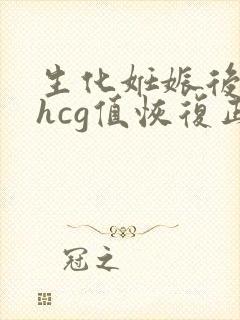 生化妊娠後
hcg值恢復正
冠之